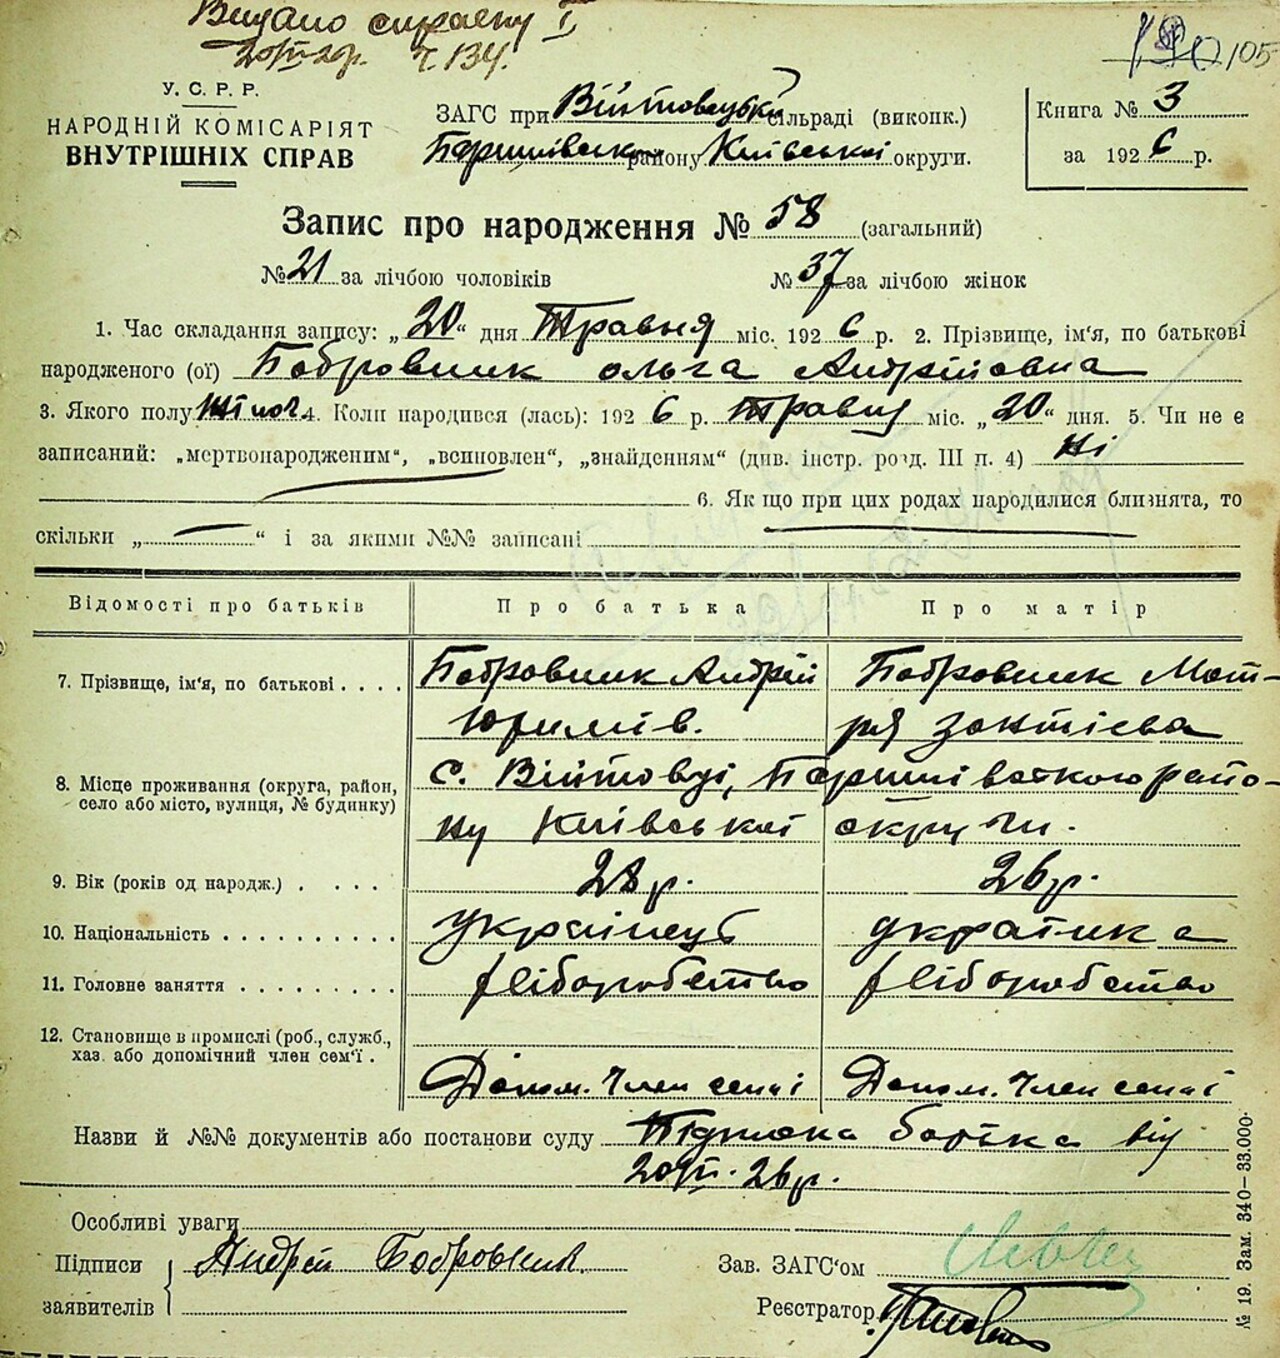 Видано справку
У. С. Р. Р.
НАРОДНІЙ КОМІСАРІЯТ
ВНУТРІШНІХ СПРАВ
105
ЗАГС при Війтовецькій сільраді (виконк.)
Баришівськ району Київської округи.
Книга № 3
за 1926 р.
Запис про народження № 58 (загальний)
№ 21 за лічбою чоловіків № 37 за лічбою жінок
1. Час складання запису: „20“ дня Травня міс. 1926 р. 2. Прізвище, ім'я, по батькові
народженого (ої) Бобровник Ольга Андріївна
3. Якого полу жіноч. 4. Коли народився (лась): 1926 р. Травня міс. „20“ дня. 5. Чи не є
записаний: „мертвонародженим“, „всиновлен“, „знайденням“ (див. інстр. розд. III п. 4) Ні
6. Якщо при цих родах народилися близнята, то
скільки „ — “ і за якими №№ записані
Відомості про батьків Про батька Про матір
7. Прізвище, ім'я, по батькові . . . . Бобровник Андрій Бобровник Мот-
ря
8. Місце проживання (округа, район, село або місто, вулиця, № будинку) с. Війтовці, Баришівського райо-
ну Київської округи.
9. Вік (років од народж.) . . . . 28 р. 26 р.
10. Національність . . . . . . . . . . українець українка
11. Головне заняття . . . . . . . . . хліборобство хліборобство
12. Становище в промислі (роб., служб., хаз. або допомічний член сем'ї . Допом. член семї Допом. член семї
Назви й №№ документів або постанови суду батька від
Особливі уваги
Підписи Андрій Бобровник Зав. ЗАГС'ом
заявителів Реєстратор
№ 19. Зам. 340—33.000.